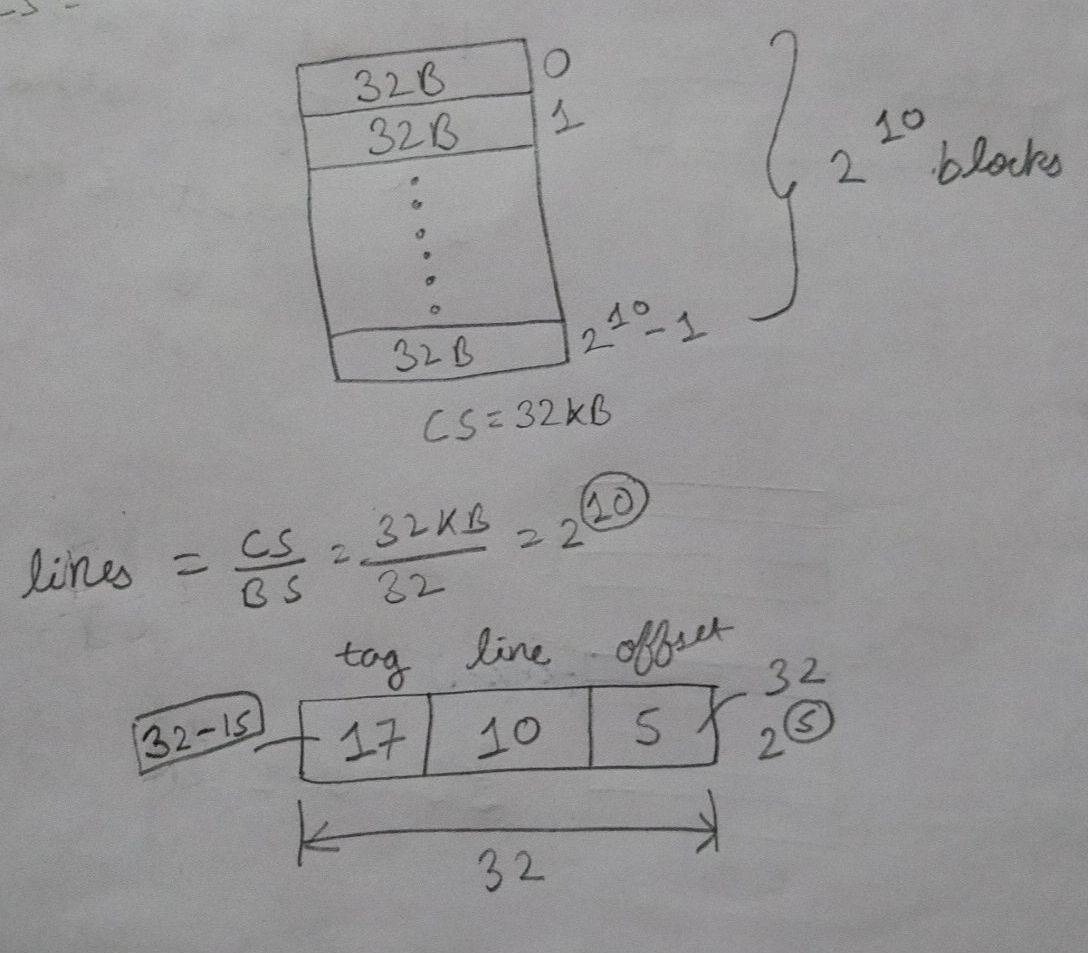 32B 0
32B 1
2^10 blocks
32B 2^10-1
CS=32KB
lines = CS/BS = 32KB/32 = 2^10
tag line offset
32-15 17 10 5 32
2^5
32